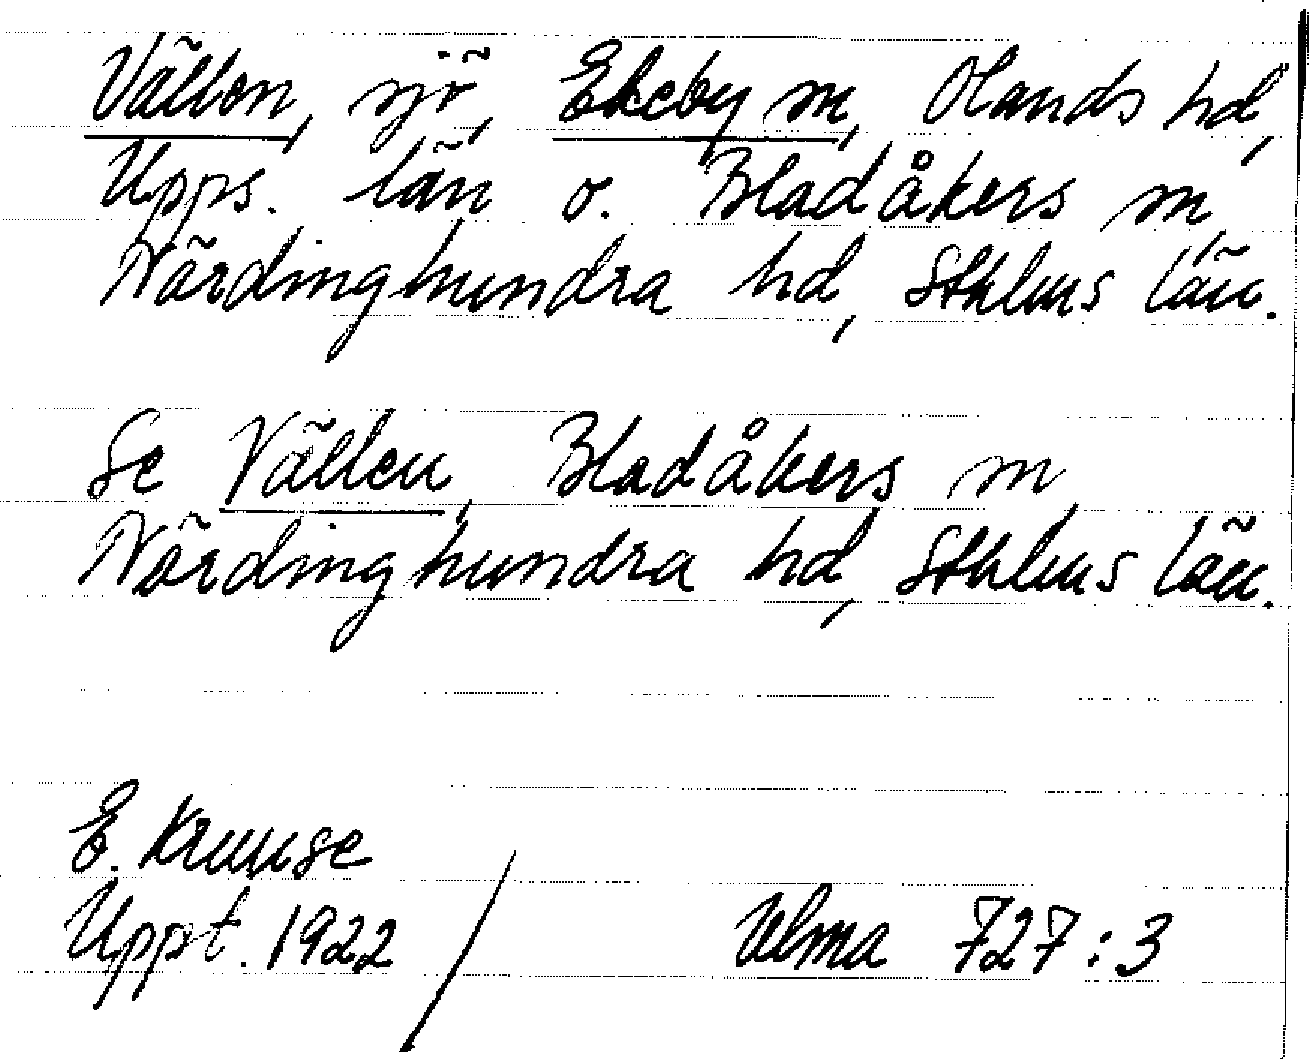 Vällen, sjö, Ekeby sn, Olands hd,
Upps. län o. Bladåkers sn,
Närdinghundra hd, Sthlms län.
Se Vällen, Bladåkers sn,
Närdinghundra hd, Sthlms län.
E. Kruuse
Uppt. 1922 / Ulma 727:3